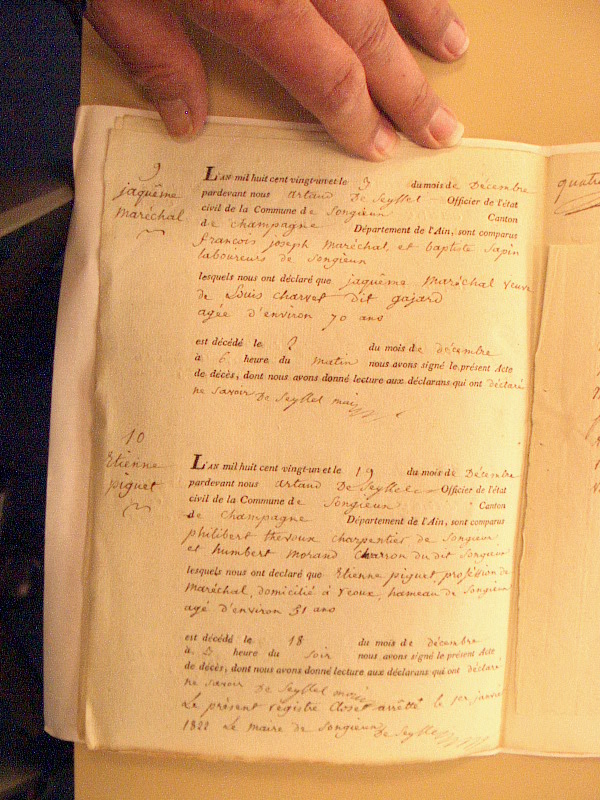 9
jaquême
maréchal
L'AN mil huit cent vingt-un et le 3 du mois de Décembre
pardevant nous artaud De Seyssel Officier de l'état
civil de la Commune de Songieux Canton
de champagne Département de l'Ain, sont comparus
françois joseph maréchal, et baptiste Sapin
laboureurs de Songieux
lesquels nous ont déclaré que jaquême Maréchal veuve
de Louis charvet dit gajard
agée d'environ 70 ans
est décédé le 2 du mois de décembre
à 6 heure du matin nous avons signé le présent Acte
de décès, dont nous avons donné lecture aux déclarans qui ont déclaré
ne savoir De Seyssel maire
10
Etienne
piguet
L'AN mil huit cent vingt-un et le 19 du mois de Décembre
pardevant nous artaud De Seyssel Officier de l'état
civil de la Commune de Songieux Canton
de champagne Département de l'Ain, sont comparus
philibert thevoux charpentier de Songieux
et humbert morand Charron du dit Songieux
lesquels nous ont déclaré que Etienne piguet, profession de
Maréchal, domicilié à hameau de Songieux
agé d'environ 51 ans
est décédé le 18 du mois de décembre
à heure du Soir nous avons signé le présent Acte
de décès, dont nous avons donné lecture aux déclarans qui ont déclaré
ne savoir De Seyssel maire
Le présent registre Clos et arrêtté le 1er janvier
1822 Le maire de Songieux De Seyssel
quatre